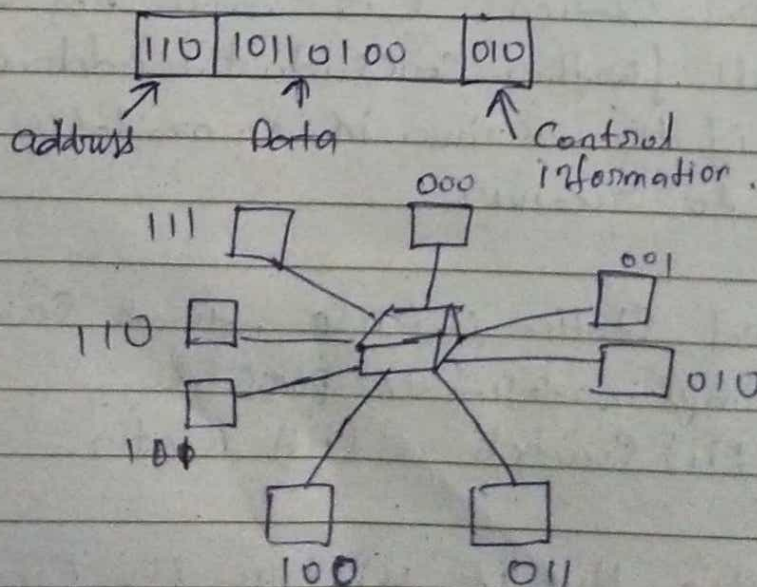 110 10110100 010
address Data Control
information.
000
111
001
110
010
100 011